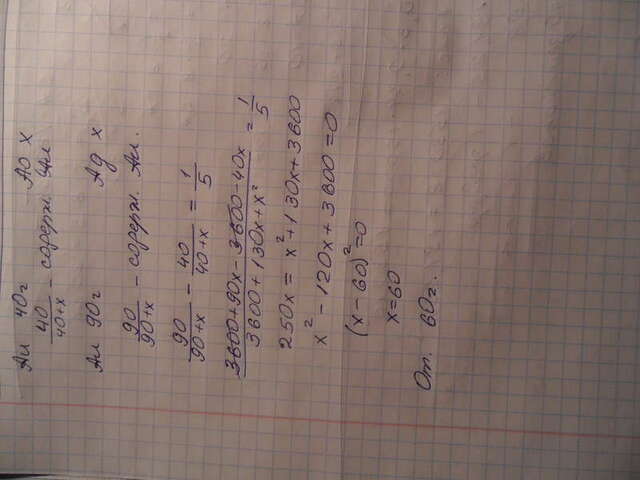 Ал 40г До x
40/(40+x) - содерж. Ал
Ал 90г Ад x
90/(90+x) - содерж. Ал.
90/(90+x) - 40/(40+x) = 1/5
(3600+90x-3600-40x)/(3600+130x+x²) = 1/5
250x = x²+130x+3600
x²-120x+3600=0
(x-60)²=0
x=60
От. 60г.